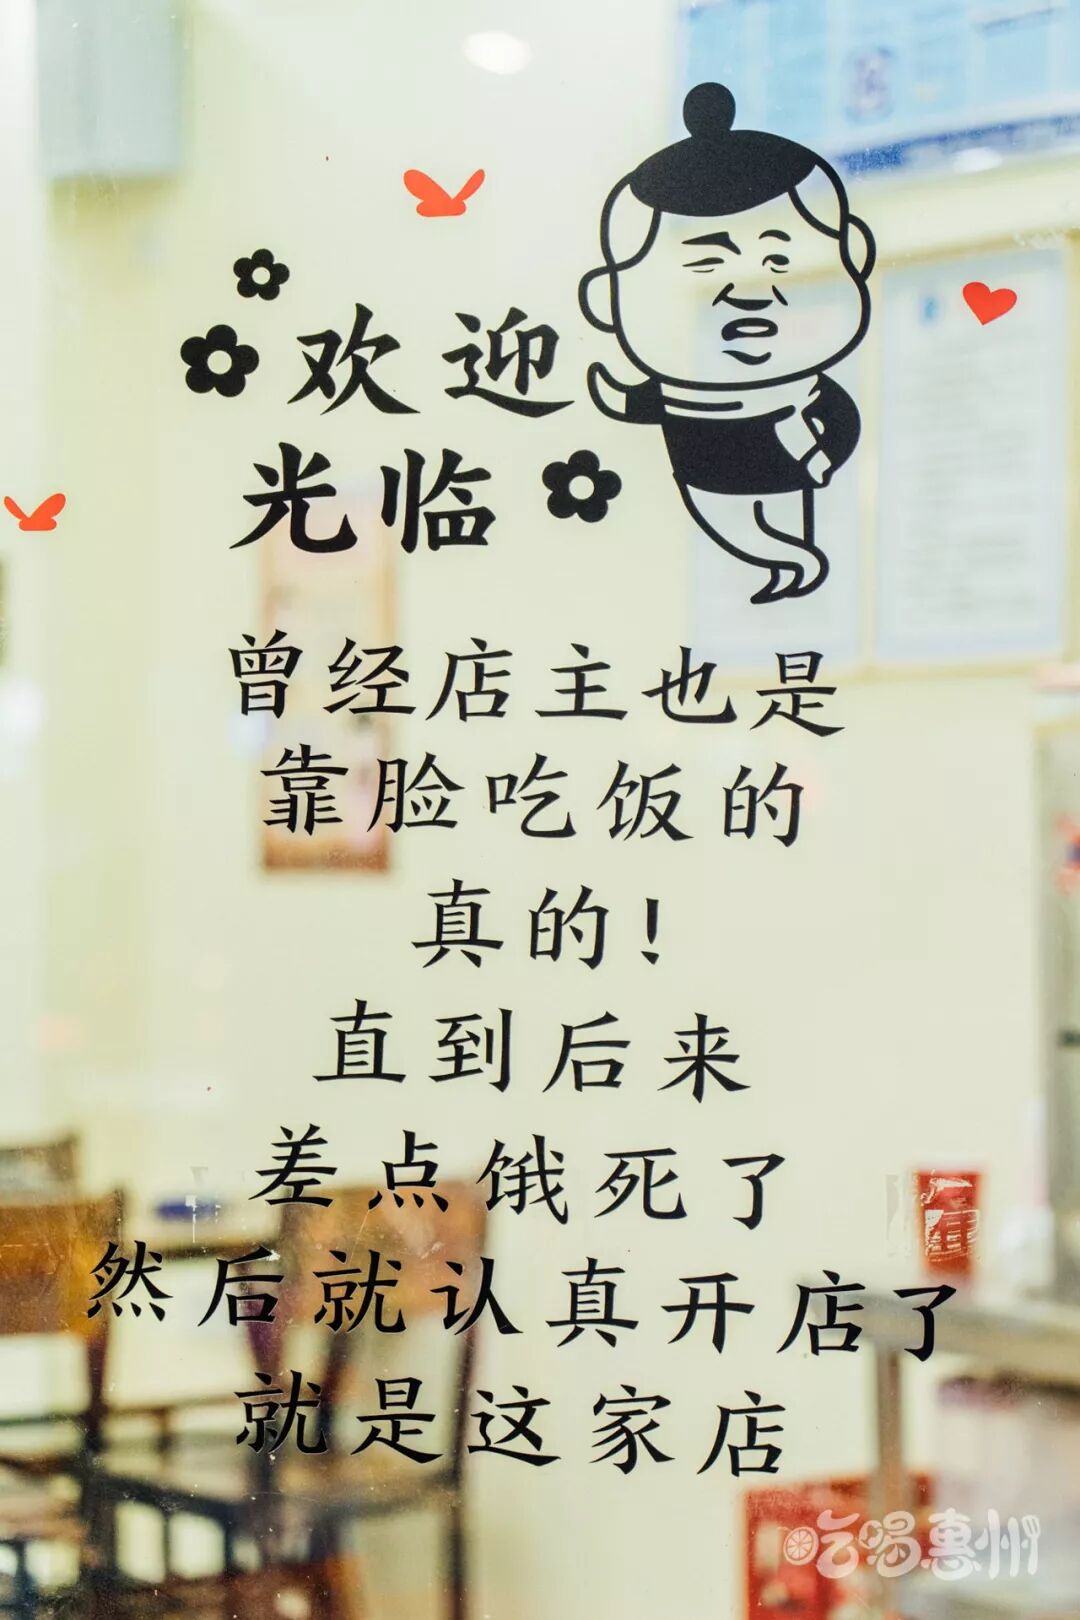 欢迎
光临
曾经店主也是
靠脸吃饭的
真的!
直到后来
差点饿死了
然后就认真开店了
就是这家店
吃喝惠州